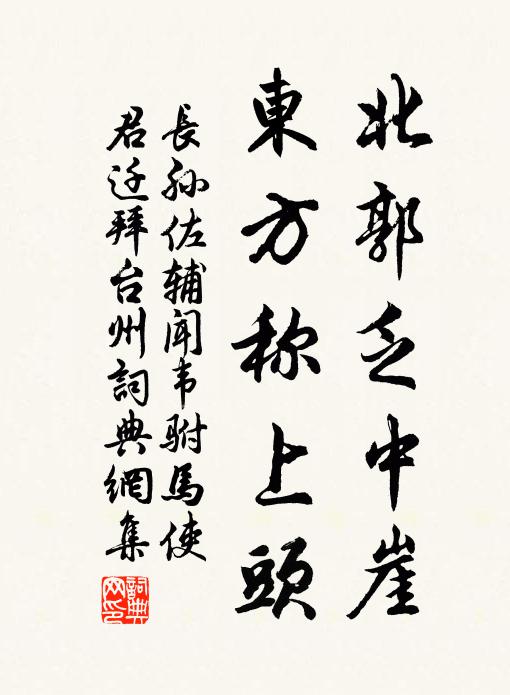 北郭乏中崖
東方称上頭
長孙佐辅闻韦駙馬使
君迁拜台州詞典網集
詞典
网印